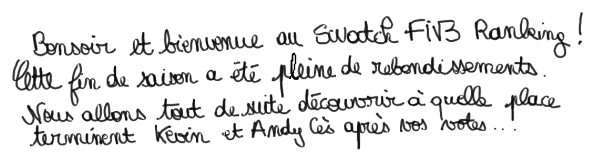 Bonsoir et bienvenue au Swatch FIVB Ranking !
Cette fin de saison a été pleine de rebondissements.
Nous allons tout de suite découvrir à quelle place
terminent Kévin et Andy Cès après vos votes...